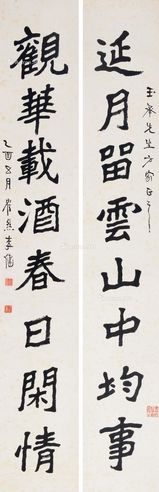 延月留雲山中均事
玉峯先生方家正之
觀華載酒春日閑情
乙酉五月